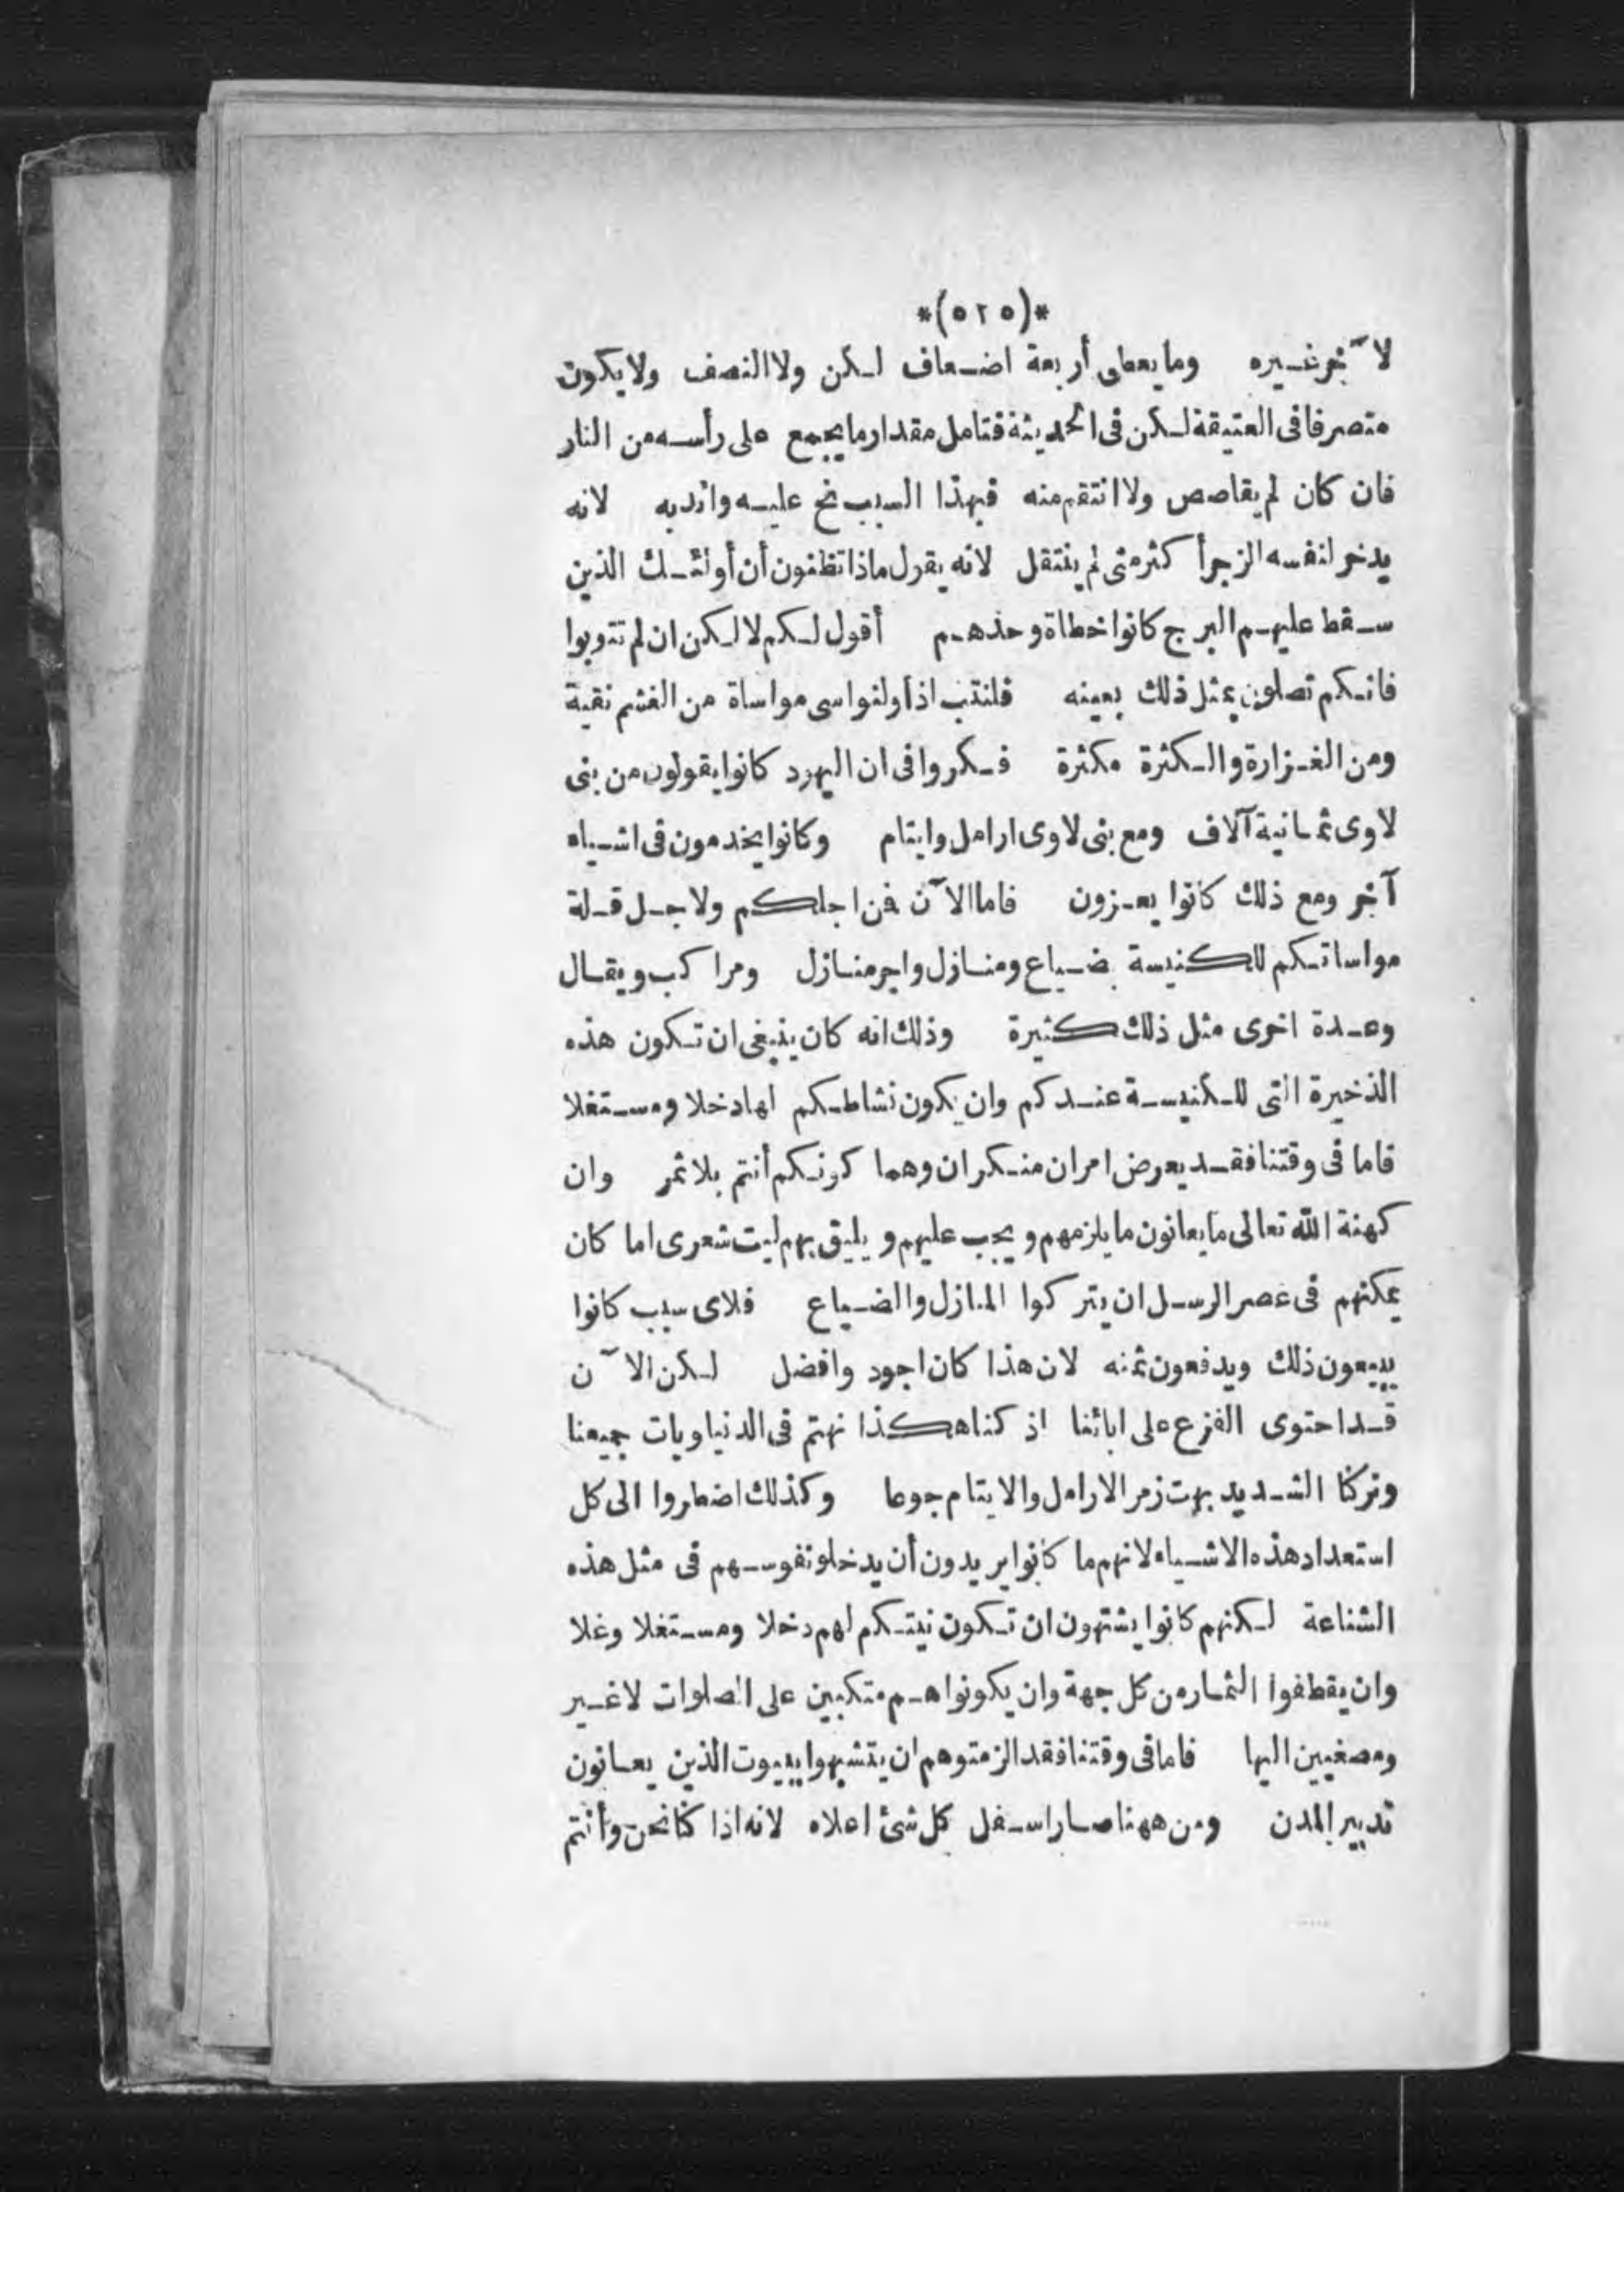 *(٥٢٥)*
لآخر غيره وما يعطى أربعة اضعاف لكن ولا النصف ولا يكون
متصرفا فى العتيقة لكن فى الحديثة فتامل مقدار ما يجمع على رأسه من النار
فان كان لم يقاصص ولا انتقم منه فبهذا السبب نح عليه واندبه لانه
يدخر لنفسه الزجر أكثر متى لم ينتقل لانه يقول ماذا تظنون أن أولئك الذين
سقط عليهم البرج كانوا خطاة وحذهم أقول لكم لا لكن ان لم تتوبوا
فانكم تصلون بمثل ذلك بعينه فلنتب اذا ولنواسى مواساة من الغشم نقية
ومن الغزارة والكثرة مكثرة فكروا فى ان اليهود كانوا يقولون من بنى
لاوى ثمانية آلاف ومع بنى لاوى ارامل وايتام وكانوا يخدمون فى اشياء
آخر ومع ذلك كانوا يعزون فاما الآن فمن اجلكم ولاجل قلة
مواساتكم للكنيسة ضياع ومنازل واجر منازل ومراكب وبقال
وعدة اخرى مثل ذلك كثيرة وذلك انه كان ينبغى ان تكون هذه
الذخيرة التى للكنيسة عندكم وان يكون نشاطكم لها دخلا ومستغلا
فاما فى وقتنا فقد يعرض امران منكران وهما كونكم أنتم بلا ثمر وان
كهنة الله تعالى ما يعانون ما يلزمهم ويجب عليهم ويليق بهم ليت شعرى اما كان
يمكنهم فى عصر الرسل ان يتركوا المنازل والضياع فلاى سبب كانوا
يبيعون ذلك ويدفعون ثمنه لان هذا كان اجود وافضل لكن الآن
قد احتوى الفزع على ابائنا اذ كنا هكذا نهتم فى الدنيا وبات جميعنا
وتركنا الشديد بهت زمر الارامل والايتام جوعا وكذلك اضطروا الى كل
استعداد هذه الاشياء لانهم ما كانوا يريدون أن يدخلو نفوسهم فى مثل هذه
الشناعة لكنهم كانوا يشتهون ان تكون نيتكم لهم دخلا ومستغلا وغلا
وان يقطفوا الثمار من كل جهة وان يكونوا هم متكبين على الصلوات لا غير
ومصغيين اليها فاما فى وقتنا فقد الزمتوهم ان يتشبهوا ببيوت الذين يعانون
تدبير المدن ومن ههنا صار اسفل كل شئ اعلاه لانه اذا كنا نحن وأنتم